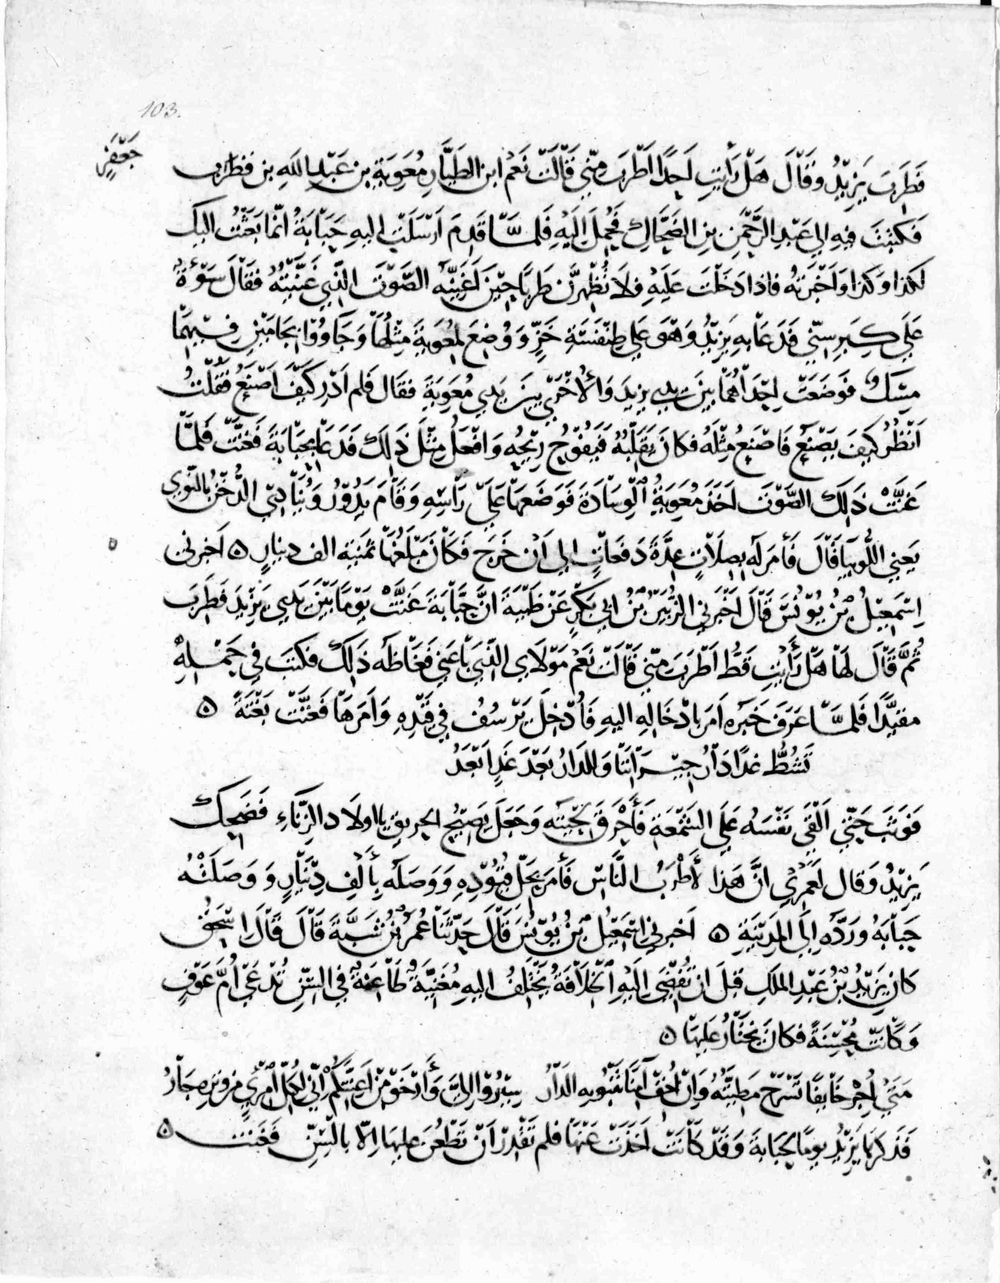 103.
جعفر
فطرب يزيد وقال هل رأيت احدا اطرب منى قالت نعم ابن الطيار معوية بن عبد الله بن فطرب
فكتب فيه الى عبد الرحمن بن الضحاك فحمل اليه فلما قدم ارسلت اليه حبابة انما بعثت اليك
لكذا وكذا واخبرته فاذا دخلت عليه فلا تظهرن طربا حين اغنيه الصوت الذى غنيته فقال سوءة
على كبر سنى فدعا به يزيد وهو على طنفسة خز ووضع لمعوية مثلها وجاووا بجامين فيهما
مسك فوضعت احداهما بين يدى يزيد والاخرى بين يدى معوية فقال فلم ادر كيف اصنع فقلت
انظر كيف يصنع فاصنع مثله فكان يقلبه فيفوح ريحه وافعل مثل ذلك فدعا بحبابة فغنت فلما
غنت ذلك الصوت اخذ معوية الوسادة فوضعها على رأسه وقام يدور وينادى الدخن بالنوى
يعنى اللوبيا قال فأمر له بصلات عدة دفعات الى ان خرج فكان مبلغها ثمنية الف دينار ه اخبرنى
اسمعيل بن يونس قال اخبرنى الزبير بن ابى بكر عن ظبية ان حبابة غنت يوما بين يدى يزيد فطرب
ثم قال لها هل رأيت قط اطرب منى قالت نعم مولاى الذى باعنى فغاظه ذلك فكتب فى حمله
مقيدا فلما عرف خبره امر بادخاله اليه فأدخل يرسف فى قيده وامرها فغنت بغتة ه
تشط غدا دار جيراننا وللدار بعد غد ابعد
فوثب حتى القى نفسه على الشمعة فأحرق لحيته وجعل يصيح الحريق يا اولاد الزناء فضحك
يزيد وقال لعمرى ان هذا لأطرب الناس فأمر بحل قيوده ووصله بألف دينار ووصلته
حبابة ورده الى المدينة ه اخبرنى اسمعيل بن يونس قال حدثنا عمر بن شبة قال قال اسحق
كان يزيد بن عبد الملك قبل ان تفضى اليه الخلافة تختلف اليه مغنية طاعنة فى السن تدعى ام عوف
وكانت محسنة فكان يختار عليها ه
متى اجر خايفا تسرح مطيته وان اخف آمنا تنبو به الدار سيروا الى وأرخوا من اعنتكم انى لكل امرئ من وتره جار
فذكرها يزيد يوما لحبابة وقد كانت اخذت عنها فلم تقدر ان تطعن عليها الا بالسن فغنت ه